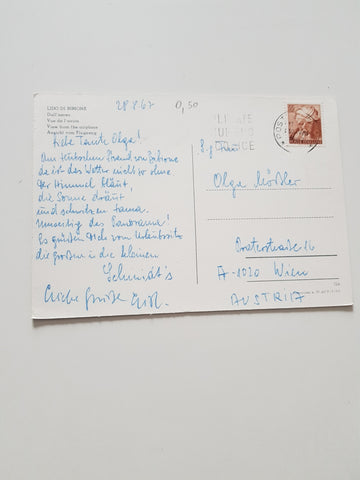 LIDO DI BIBIONE
Dall'aereo
Vue de l'avion
View from the airplane
Ansicht vom Flugzeug
28.8.67
0,50
Liebe Tante Olga!
Am hübschen Strand von Bibione
da ist das Wetter nicht so ohne
Der Himmel blaut,
die Sonne
und schwitzen tama.
Umseitig das Panorama!
Es grüßen Dich vom Urlaubssitz
die großen u die kleinen
Schmidt's
Liebe Grüße
POST
Frau
Olga
Praterstraße 16
A-1020 Wien
AUSTRIA